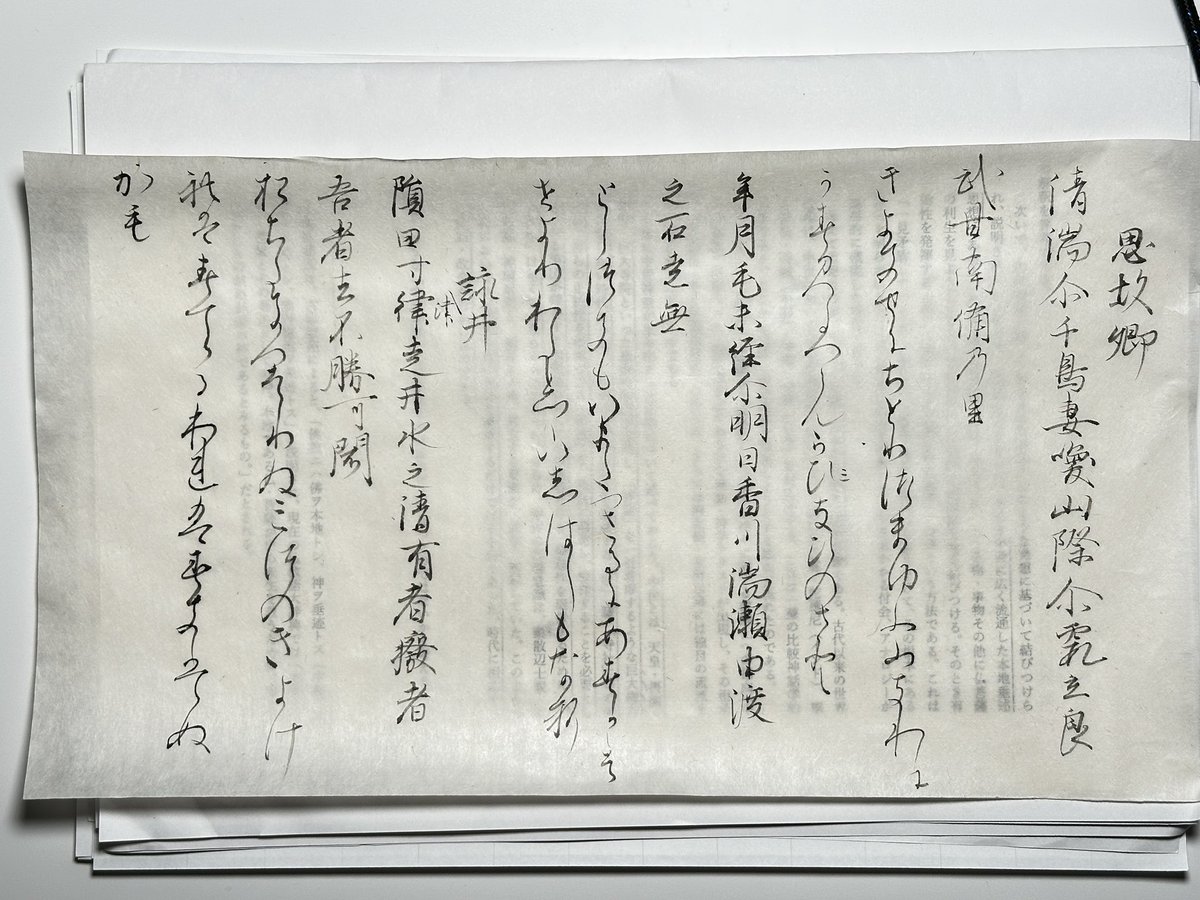 思故郷
清湍尓千鳥妻喚山際尓霞立良
武甘南備乃里
きよきせにちとりつまよふ山きわに
かすみたつらんかひなひのさと
ミ
年月毛未経尓明日香川湍瀬由渡
之石走無
としつきもいまたへさるにあすかかは
せよりわたしゝいしはしもなし
詠井
隕田寸律走井水之清有者癈者
津
吾者去不勝可聞
おちたきつはしりゐみつのきよけ
れはすてゝわれはすきかてぬ
かも